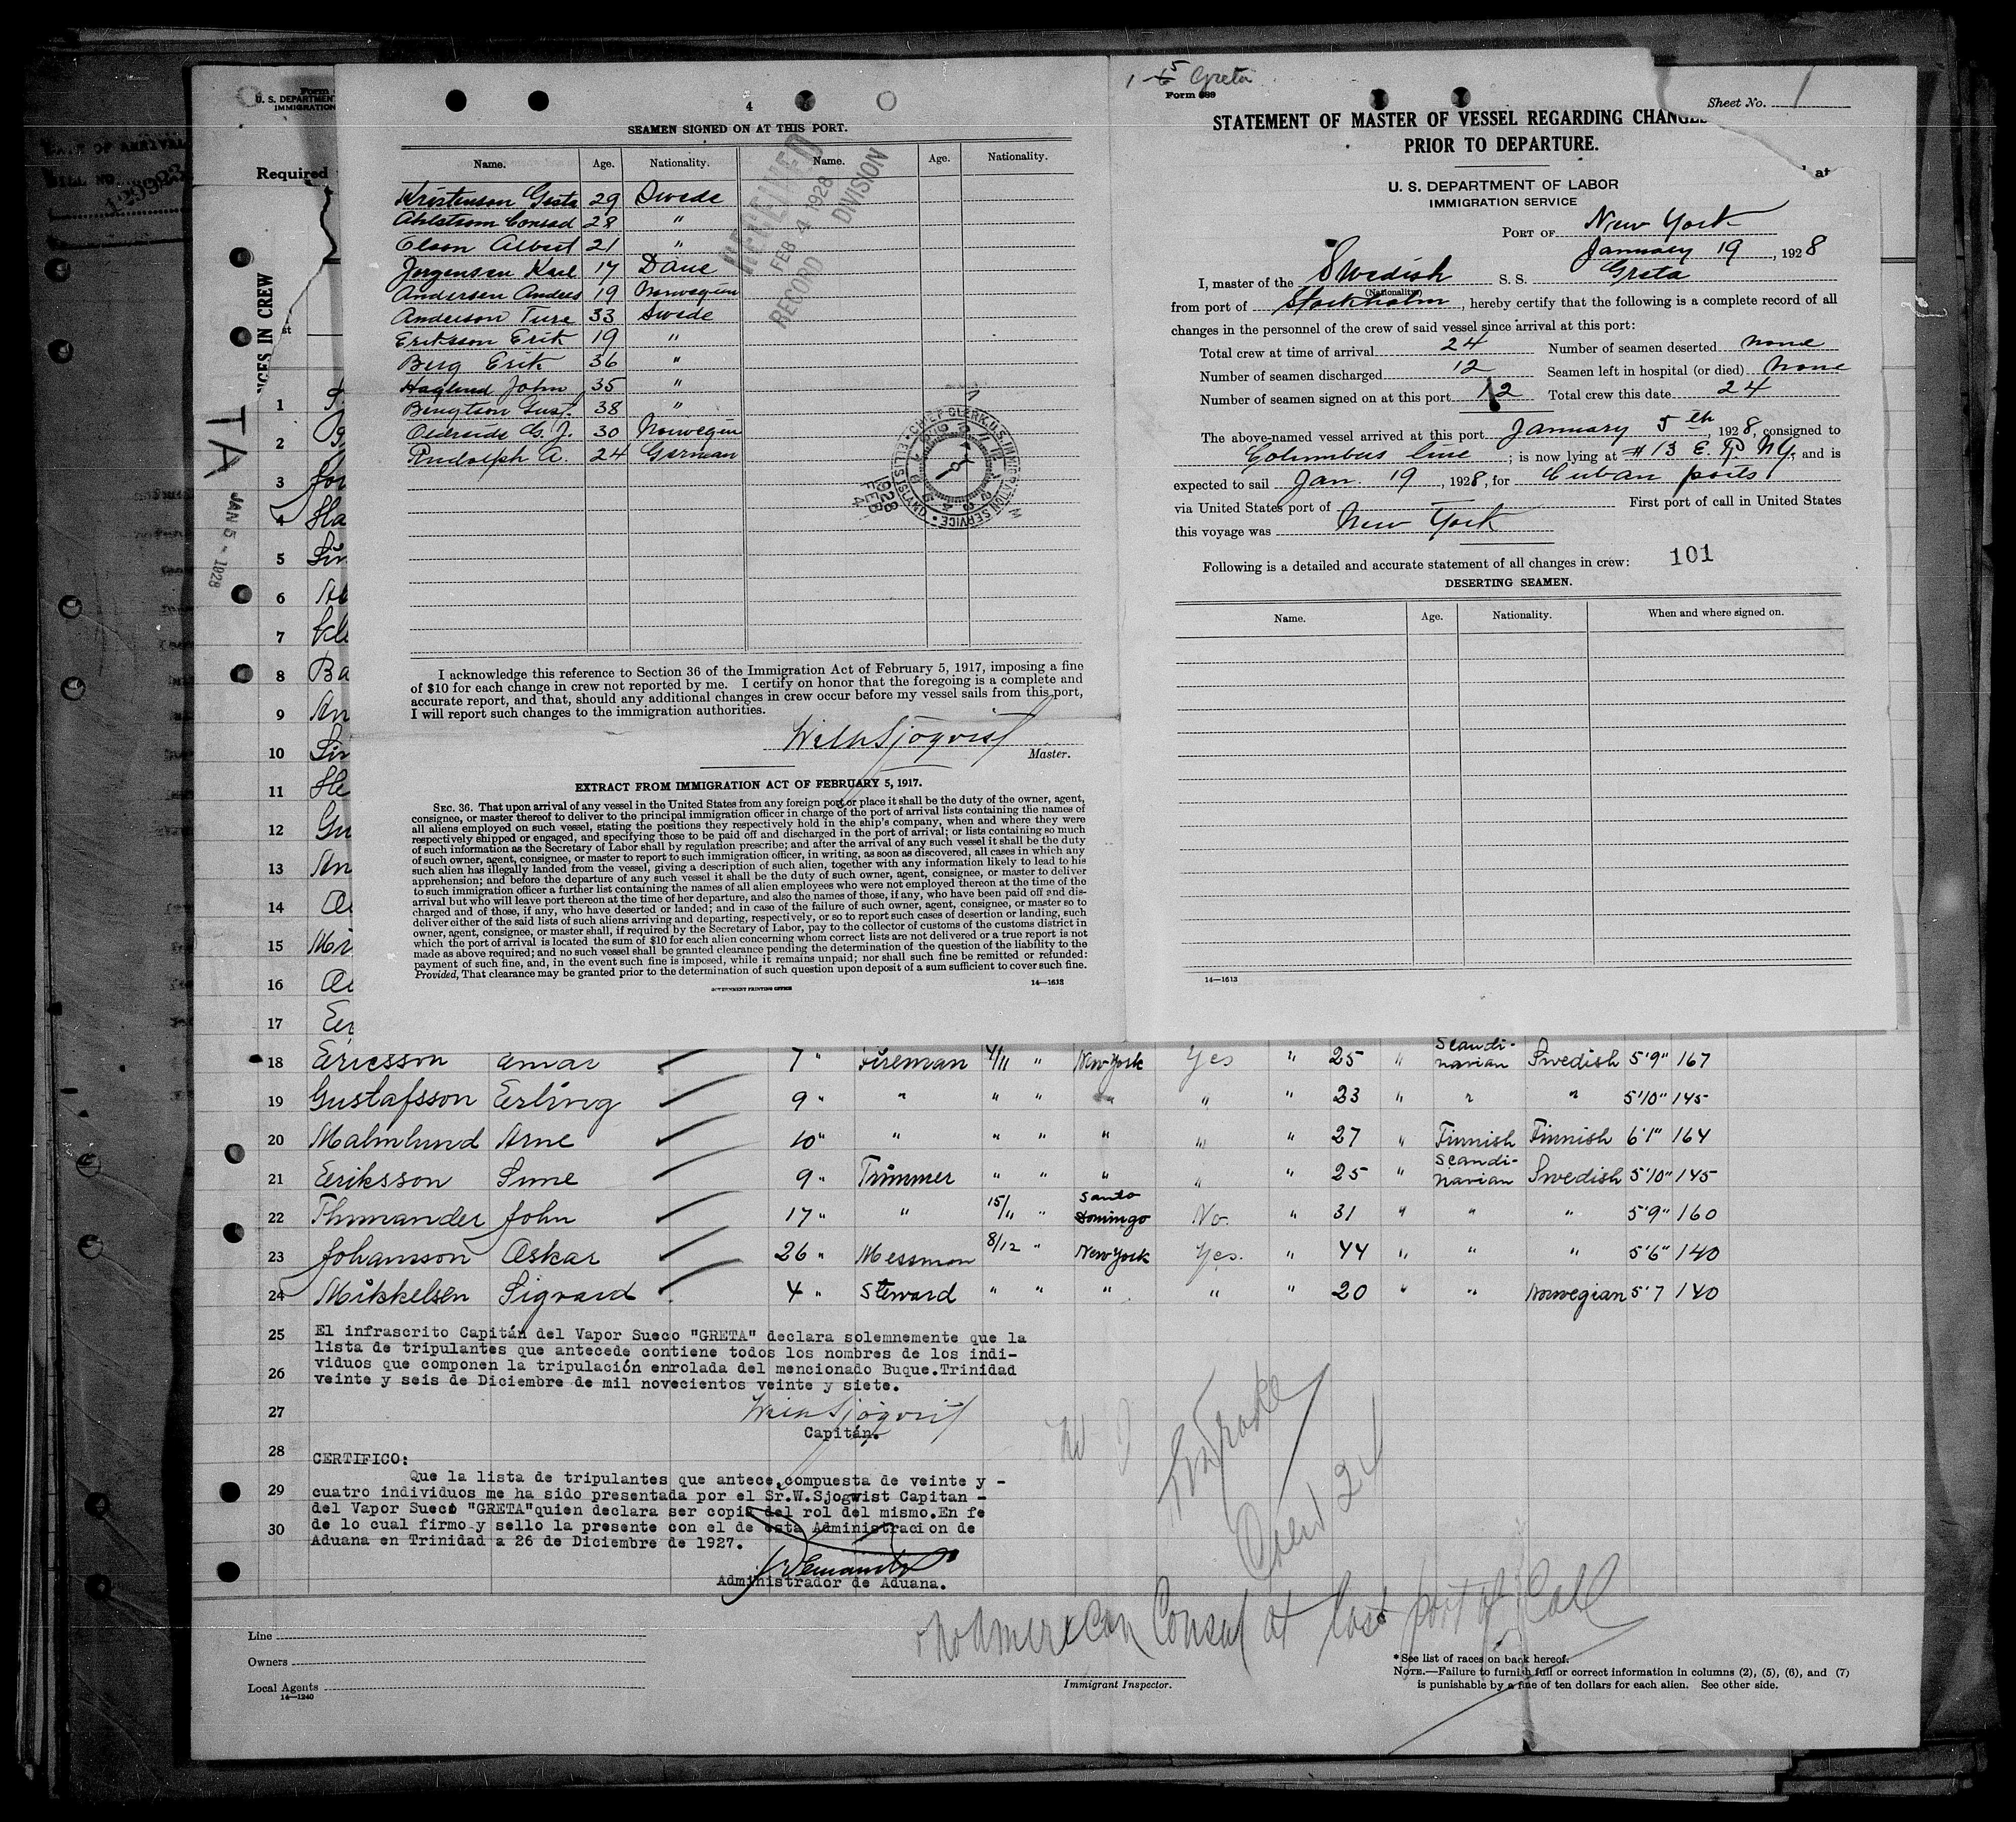 4
SEAMEN SIGNED ON AT THIS PORT.
Name. Age. Nationality. Name. Age. Nationality.
Kristenson Gösta 29 Swede
Ahlstrom Conrad 28 "
Olson Albert 21 "
Jorgensen Karl 17 Dane
Andersen Anders 19 Norwegian
Anderson Ture 33 Swede
Eriksson Erik 19 "
Berg Erik 36 "
Haglund John 35 "
Bengtson Gust. 38 "
G. J. 30 Norwegen
Rudolph A. 24 German
RECEIVED
FEB 4 1928
RECORD DIVISION
CHIEF CLERK, U.S. IMMIGRATION SERVICE • ELLIS ISLAND
1928
FEB
4
I acknowledge this reference to Section 36 of the Immigration Act of February 5, 1917, imposing a fine
of $10 for each change in crew not reported by me. I certify on honor that the foregoing is a complete and
accurate report, and that, should any additional changes in crew occur before my vessel sails from this port,
I will report such changes to the immigration authorities.
Wilh Sjöqvist
Master.
EXTRACT FROM IMMIGRATION ACT OF FEBRUARY 5, 1917.
SEC. 36. That upon arrival of any vessel in the United States from any foreign port or place it shall be the duty of the owner, agent,
consignee, or master thereof to deliver to the principal immigration officer in charge of the port of arrival lists containing the names of
all aliens employed on such vessel, stating the positions they respectively hold in the ship's company, when and where they were
respectively shipped or engaged, and specifying those to be paid off and discharged in the port of arrival; or lists containing so much
of such information as the Secretary of Labor shall by regulation prescribe; and after the arrival of any such vessel it shall be the duty
of such owner, agent, consignee, or master to report to such immigration officer, in writing, as soon as discovered, all cases in which any
such alien has illegally landed from the vessel, giving a description of such alien, together with any information likely to lead to his
apprehension; and before the departure of any such vessel it shall be the duty of such owner, agent, consignee, or master to deliver
to such immigration officer a further list containing the names of all alien employees who were not employed thereon at the time of the
arrival but who will leave port thereon at the time of her departure, and also the names of those, if any, who have been paid off and dis-
charged and of those, if any, who have deserted or landed; and in case of the failure of such owner, agent, consignee, or master so to
deliver either of the said lists of such aliens arriving and departing, respectively, or so to report such cases of desertion or landing, such
owner, agent, consignee, or master shall, if required by the Secretary of Labor, pay to the collector of customs of the customs district in
which the port of arrival is located the sum of $10 for each alien concerning whom correct lists are not delivered or a true report is not
made as above required; and no such vessel shall be granted clearance pending the determination of the question of the liability to the
payment of such fine, and, in the event such fine is imposed, while it remains unpaid; nor shall such fine be remitted or refunded:
Provided, That clearance may be granted prior to the determination of such question upon deposit of a sum sufficient to cover such fine.
GOVERNMENT PRINTING OFFICE 14—1613
1-5 Greta
Form 689
Sheet No. 1
STATEMENT OF MASTER OF VESSEL REGARDING CHANGES
PRIOR TO DEPARTURE.
U. S. DEPARTMENT OF LABOR
IMMIGRATION SERVICE
PORT OF New York
January 19, 1928
I, master of the Swedish S. S. Greta
(Nationality)
from port of Stockholm, hereby certify that the following is a complete record of all
changes in the personnel of the crew of said vessel since arrival at this port:
Total crew at time of arrival 24 Number of seamen deserted none
Number of seamen discharged 12 Seamen left in hospital (or died) None
Number of seamen signed on at this port 12 Total crew this date 24
The above-named vessel arrived at this port January 5th, 1928, consigned to
Columbus line; is now lying at #13 E. R. N.Y., and is
expected to sail Jan. 19, 1928, for Cuban ports
via United States port of First port of call in United States
this voyage was New York
Following is a detailed and accurate statement of all changes in crew: 101
DESERTING SEAMEN.
Name. Age. Nationality. When and where signed on.
14—1613
at
Form
U. S. DEPARTMENT
IMMIGRATION
Required
NGES IN CREW
TA
JAN 5 - 1928
BILL NO.
1
2
3 Jo
4 Ha
5
6
7
8 Ba
9 An
10
11 He
12 Gu
13 An
14
15 Mi
16
17
18 Ericsson Einar 7 " Fireman 4/11 " New York Yes " 25 " Scandi-navian Swedish 5'9" 167
19 Gustafsson Erling 9 " " " " " " " 23 " " " 5'10" 145
20 Malmlund Arne 10 " " " " " " " 27 " Finnish Finnish 6'1" 164
21 Eriksson Sune 9 " Trimmer " " " " " 25 " Scandi-navian Swedish 5'10" 145
22 Thunander John 17 " " 15/11 " Santo Domingo No. " 31 " " " 5'9" 160
23 Johansson Oskar 26 " Messman 8/12 " New York Yes. " 44 " " " 5'6" 140
24 Mikkelsen Sigvard 4 " Steward " " " " " 20 " " Norwegian 5'7 140
25 El infrascrito Capitán del Vapor Sueco "GRETA" declara solemnemente que la
lista de tripulantes que antecede contiene todos los nombres de los indi-
26 viduos que componen la tripulación enrolada del mencionado Buque.Trinidad
veinte y seis de Diciembre de mil novecientos veinte y siete.
27 Wilh Sjöqvist
Capitán.
28 CERTIFICO:
Que la lista de tripulantes que antece,compuesta de veinte y -
29 cuatro individuos me ha sido presentada por el Sr.W.Sjogwist Capitan -
del Vapor Sueco "GRETA"quien declara ser copia del rol del mismo.En fe
30 de lo cual firmo y sello la presente con el de esta Administracion de
Aduana en Trinidad a 26 de Diciembre de 1927.
Administrador de Aduana.
Crew 24
No American Consul at last port of Call
Line
Owners
Local Agents
14—1240
Immigrant Inspector.
* See list of races on back hereof.
NOTE.—Failure to furnish full or correct information in columns (2), (5), (6), and (7)
is punishable by a fine of ten dollars for each alien. See other side.